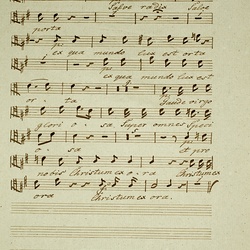 Salve radix Salve
porta
ex qua mundo lux est orta
ex qua mundo lux est
or - ta Gaude virgo
glori o - sa Super omnes Speci
o - sa et pro
nobis Christum ex o - ra Christum ex
ora Christum ex ora.